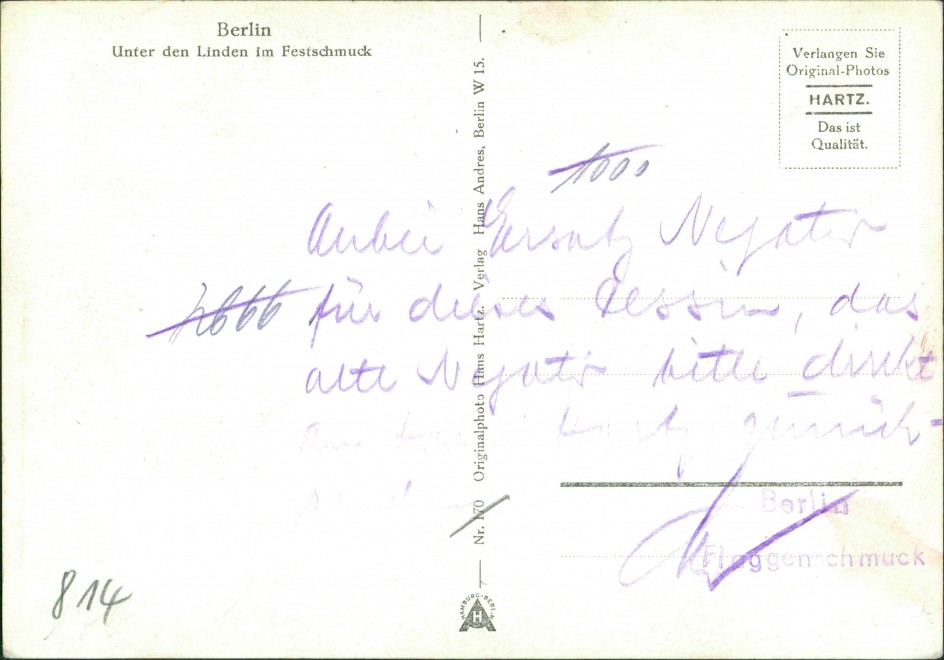 Berlin
Unter den Linden im Festschmuck
Verlangen Sie
Original-Photos
HARTZ.
Das ist
Qualität.
Nr. 170 Originalphoto Hans Hartz. Verlag Hans Andres, Berlin W 15.
1000
Anbei Ersatz Negativ
für dieses Dessin, das
alte Negativ bitte direkt
an Hans Hartz zurück-
Berlin
Flaggenschmuck
814
HAMBURG-BERLIN